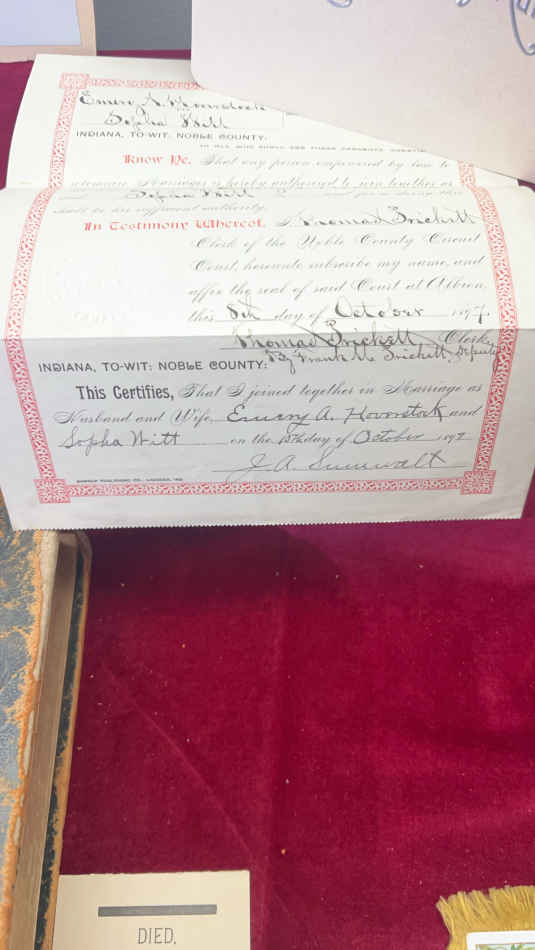 Emery A. Hovrstock
Sopha Witt
INDIANA, TO-WIT: NOBLE COUNTY:
TO ALL WHO SHALL SEE THESE PRESENTS, GREETING
Know Ye, That any person empowered by law to
solemnize Marriages is hereby authorized to join together as
Sopha Witt
shall be his sufficient authority.
In Testimony Whereof, I, Thomas Prickett
Clerk of the Noble County Circuit
Court, hereunto subscribe my name, and
affix the seal of said Court at Albion,
this 8th day of October 1897.
Thomas Prickett Clerk,
By Frank M. Prickett, Deputy
INDIANA, TO-WIT: NOBLE COUNTY:
This Certifies, That I joined together in Marriage as
Husband and Wife, Emery A. Hovrstock and
Sopha Witt on the day of October 1897
J. A. Sumwalt
DIED,